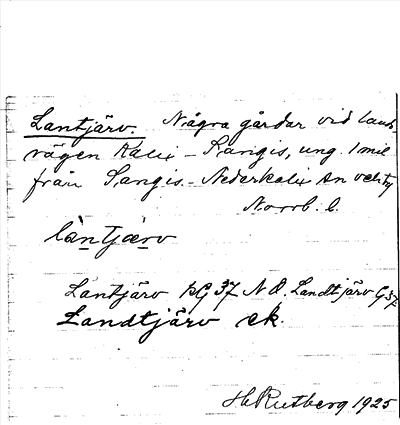 Lantjärv. Några gårdar vid lands-
vägen Kalix – Sangis, ung. 1 mil
från Sangis. – Nederkalix sn
Norrb. l.
làntjærv
Lantjärv bG 37 N O. Landtjärv G37
Landtjärv ek.
H Rutberg 1925